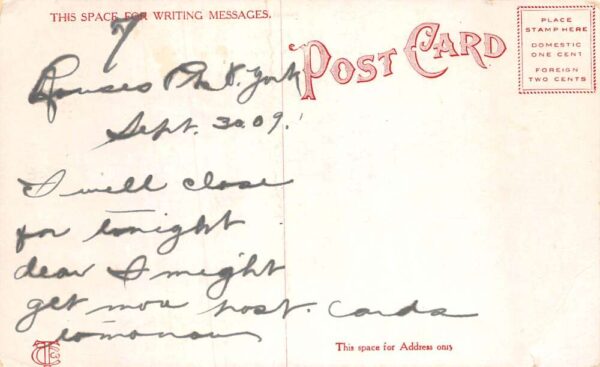 THIS SPACE FOR WRITING MESSAGES.
7
POST CARD
PLACE
STAMP HERE
DOMESTIC
ONE CENT
FOREIGN
TWO CENTS
Rouses Pt. N. York
Sept. 30.09.
I will close
for tonight
dear I might
get more post. cards
tomorrow
This space for Address only